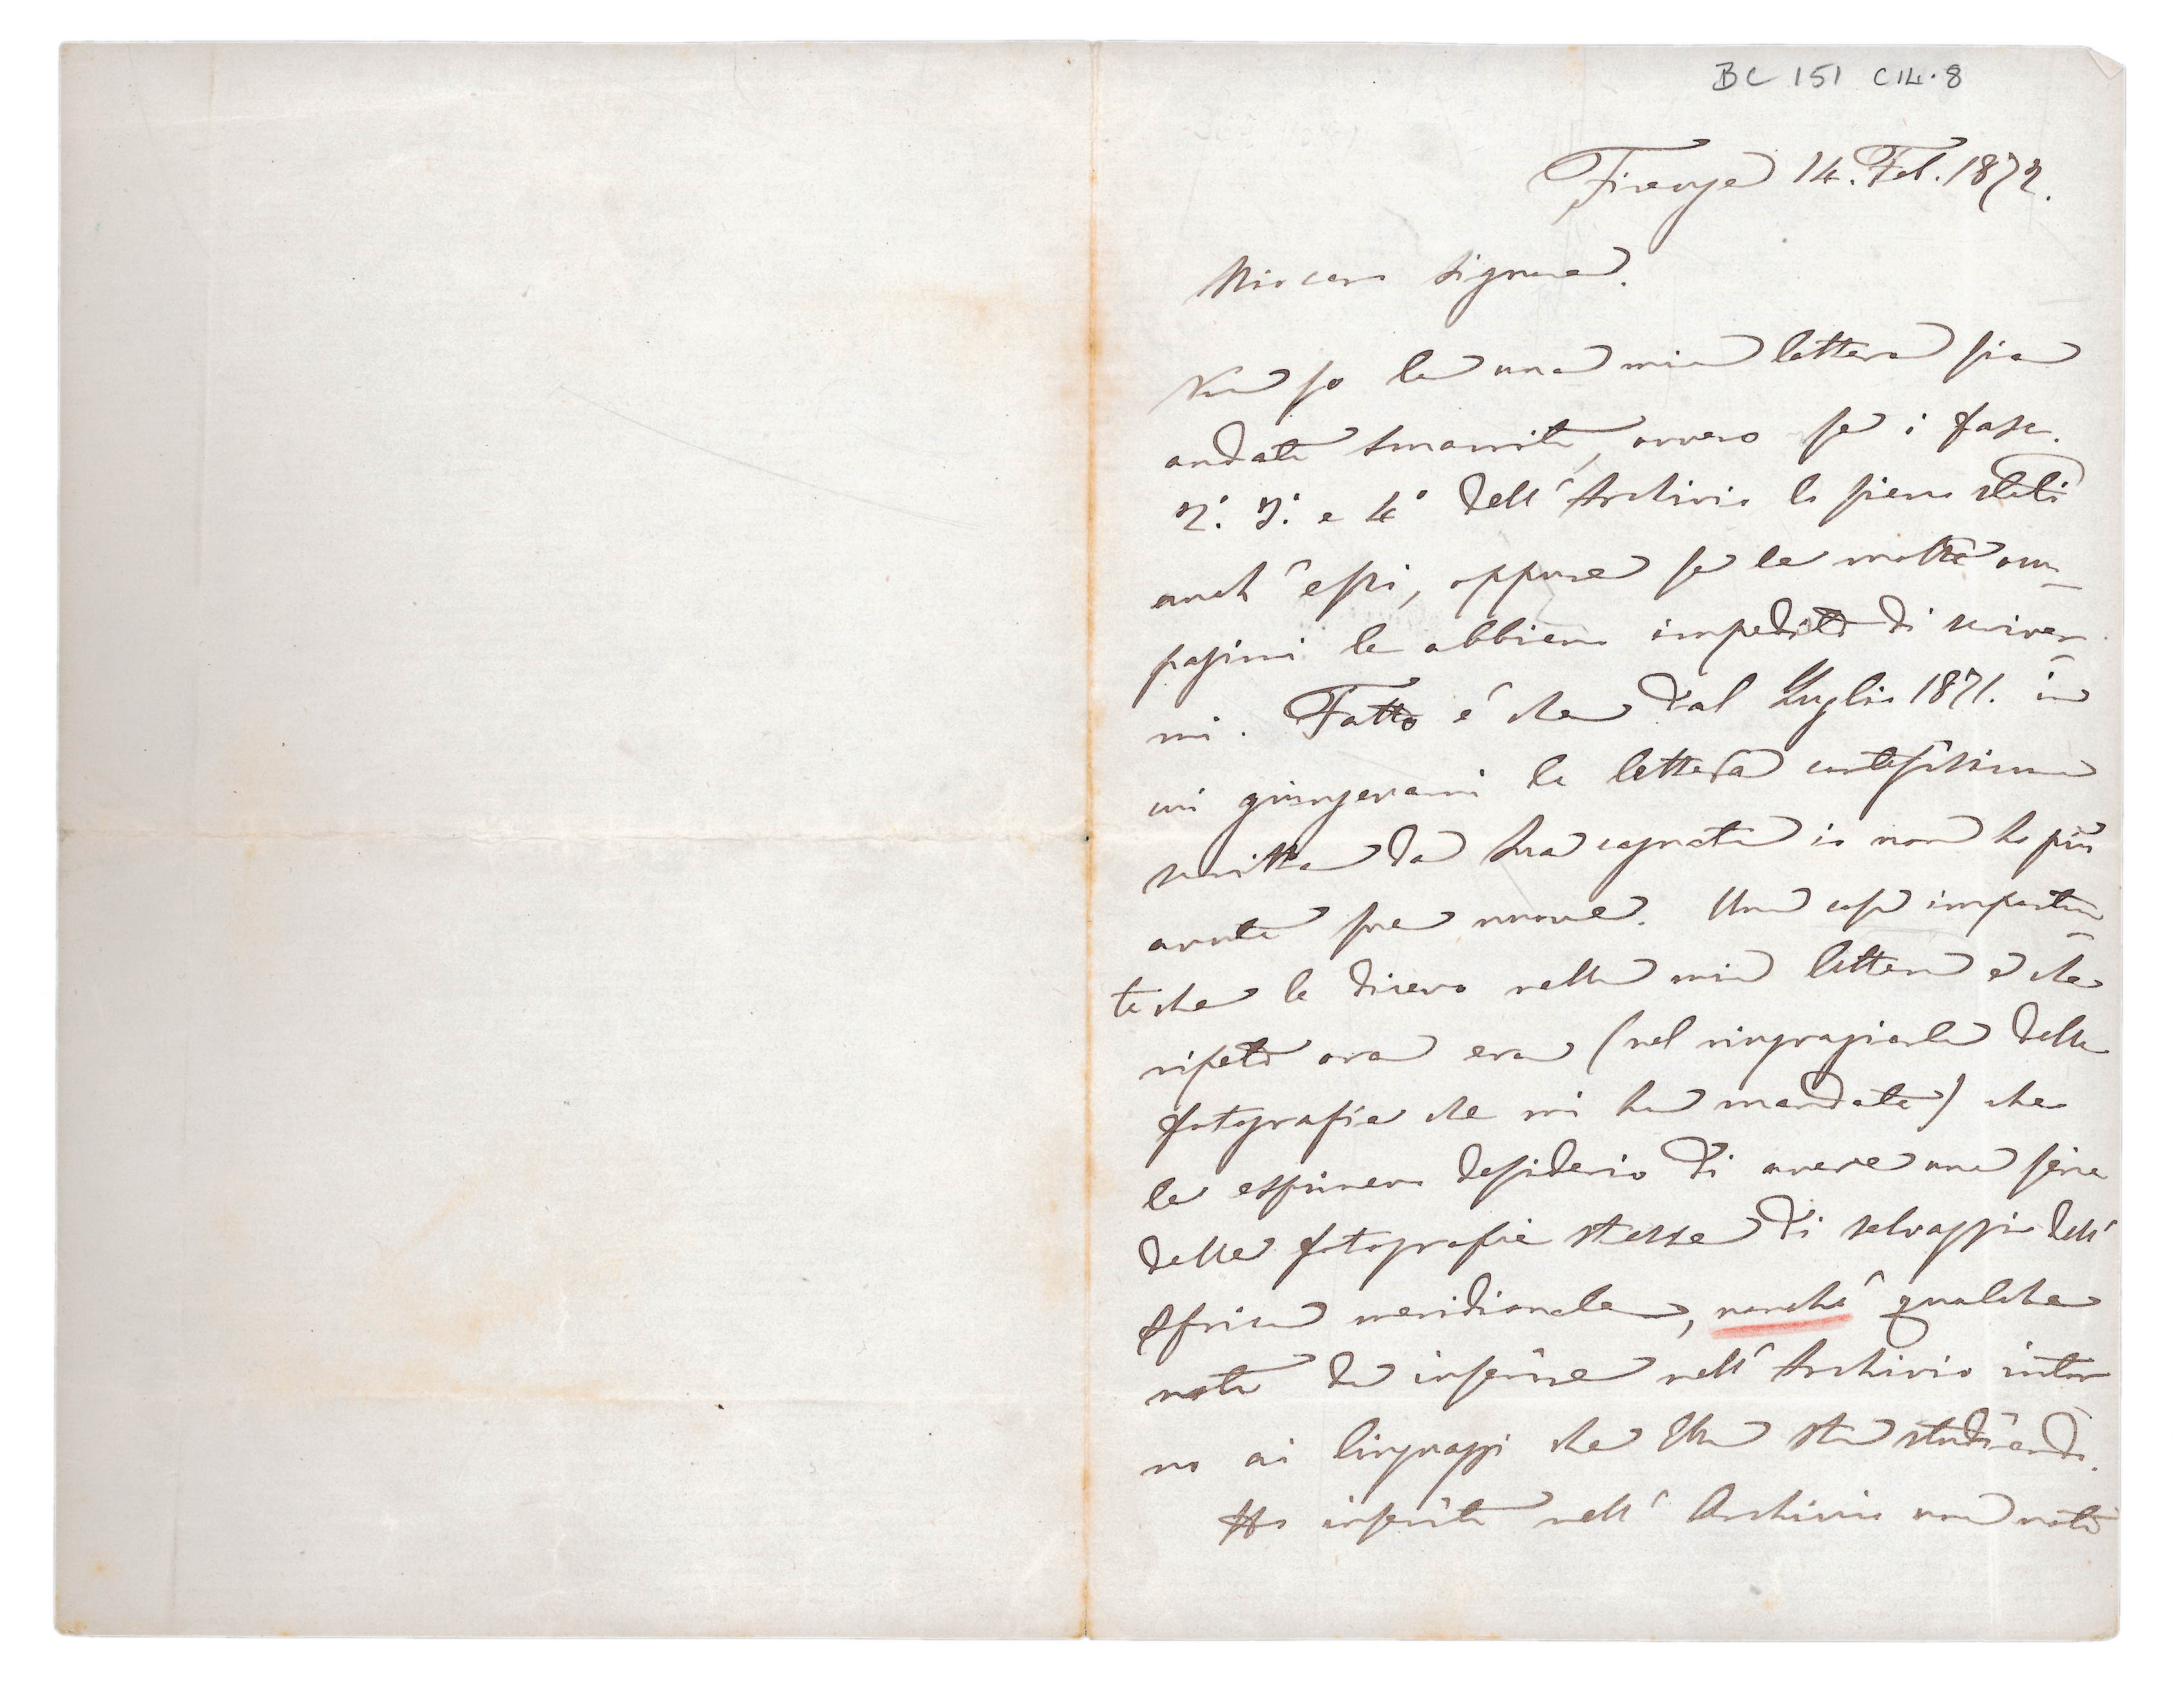 BC 151 C14.8
Firenze 14. Feb. 1872.
Mio caro Signore.
Non so se una mia lettera sia
andata smarrita, ovvero se i fasc.
2.° 3.° e 4° dell'Archivio lo sieno stati
anch'essi, oppure se le molte occu-
pazioni le abbiano impedito di scriver-
mi. Fatto é che dal Luglio 1871. in
cui giungevami la lettera cortesissima
scritta da Sua cognata io non ho più
avute sue nuove. Una cosa importan-
te che le dicevo nella mia lettera e che
ripeto ora era (nel ringraziarla delle
fotografie che mi ha mandate) che
le esprimevo desiderio di avere una serie
delle fotografie stesse di selvaggi dell'
Africa meridionale, nonché qualche
nota da inserire nell'Archivio intor
no ai linguaggi che Ella sta studiando.
Ho inserito nell'Archivio una nota